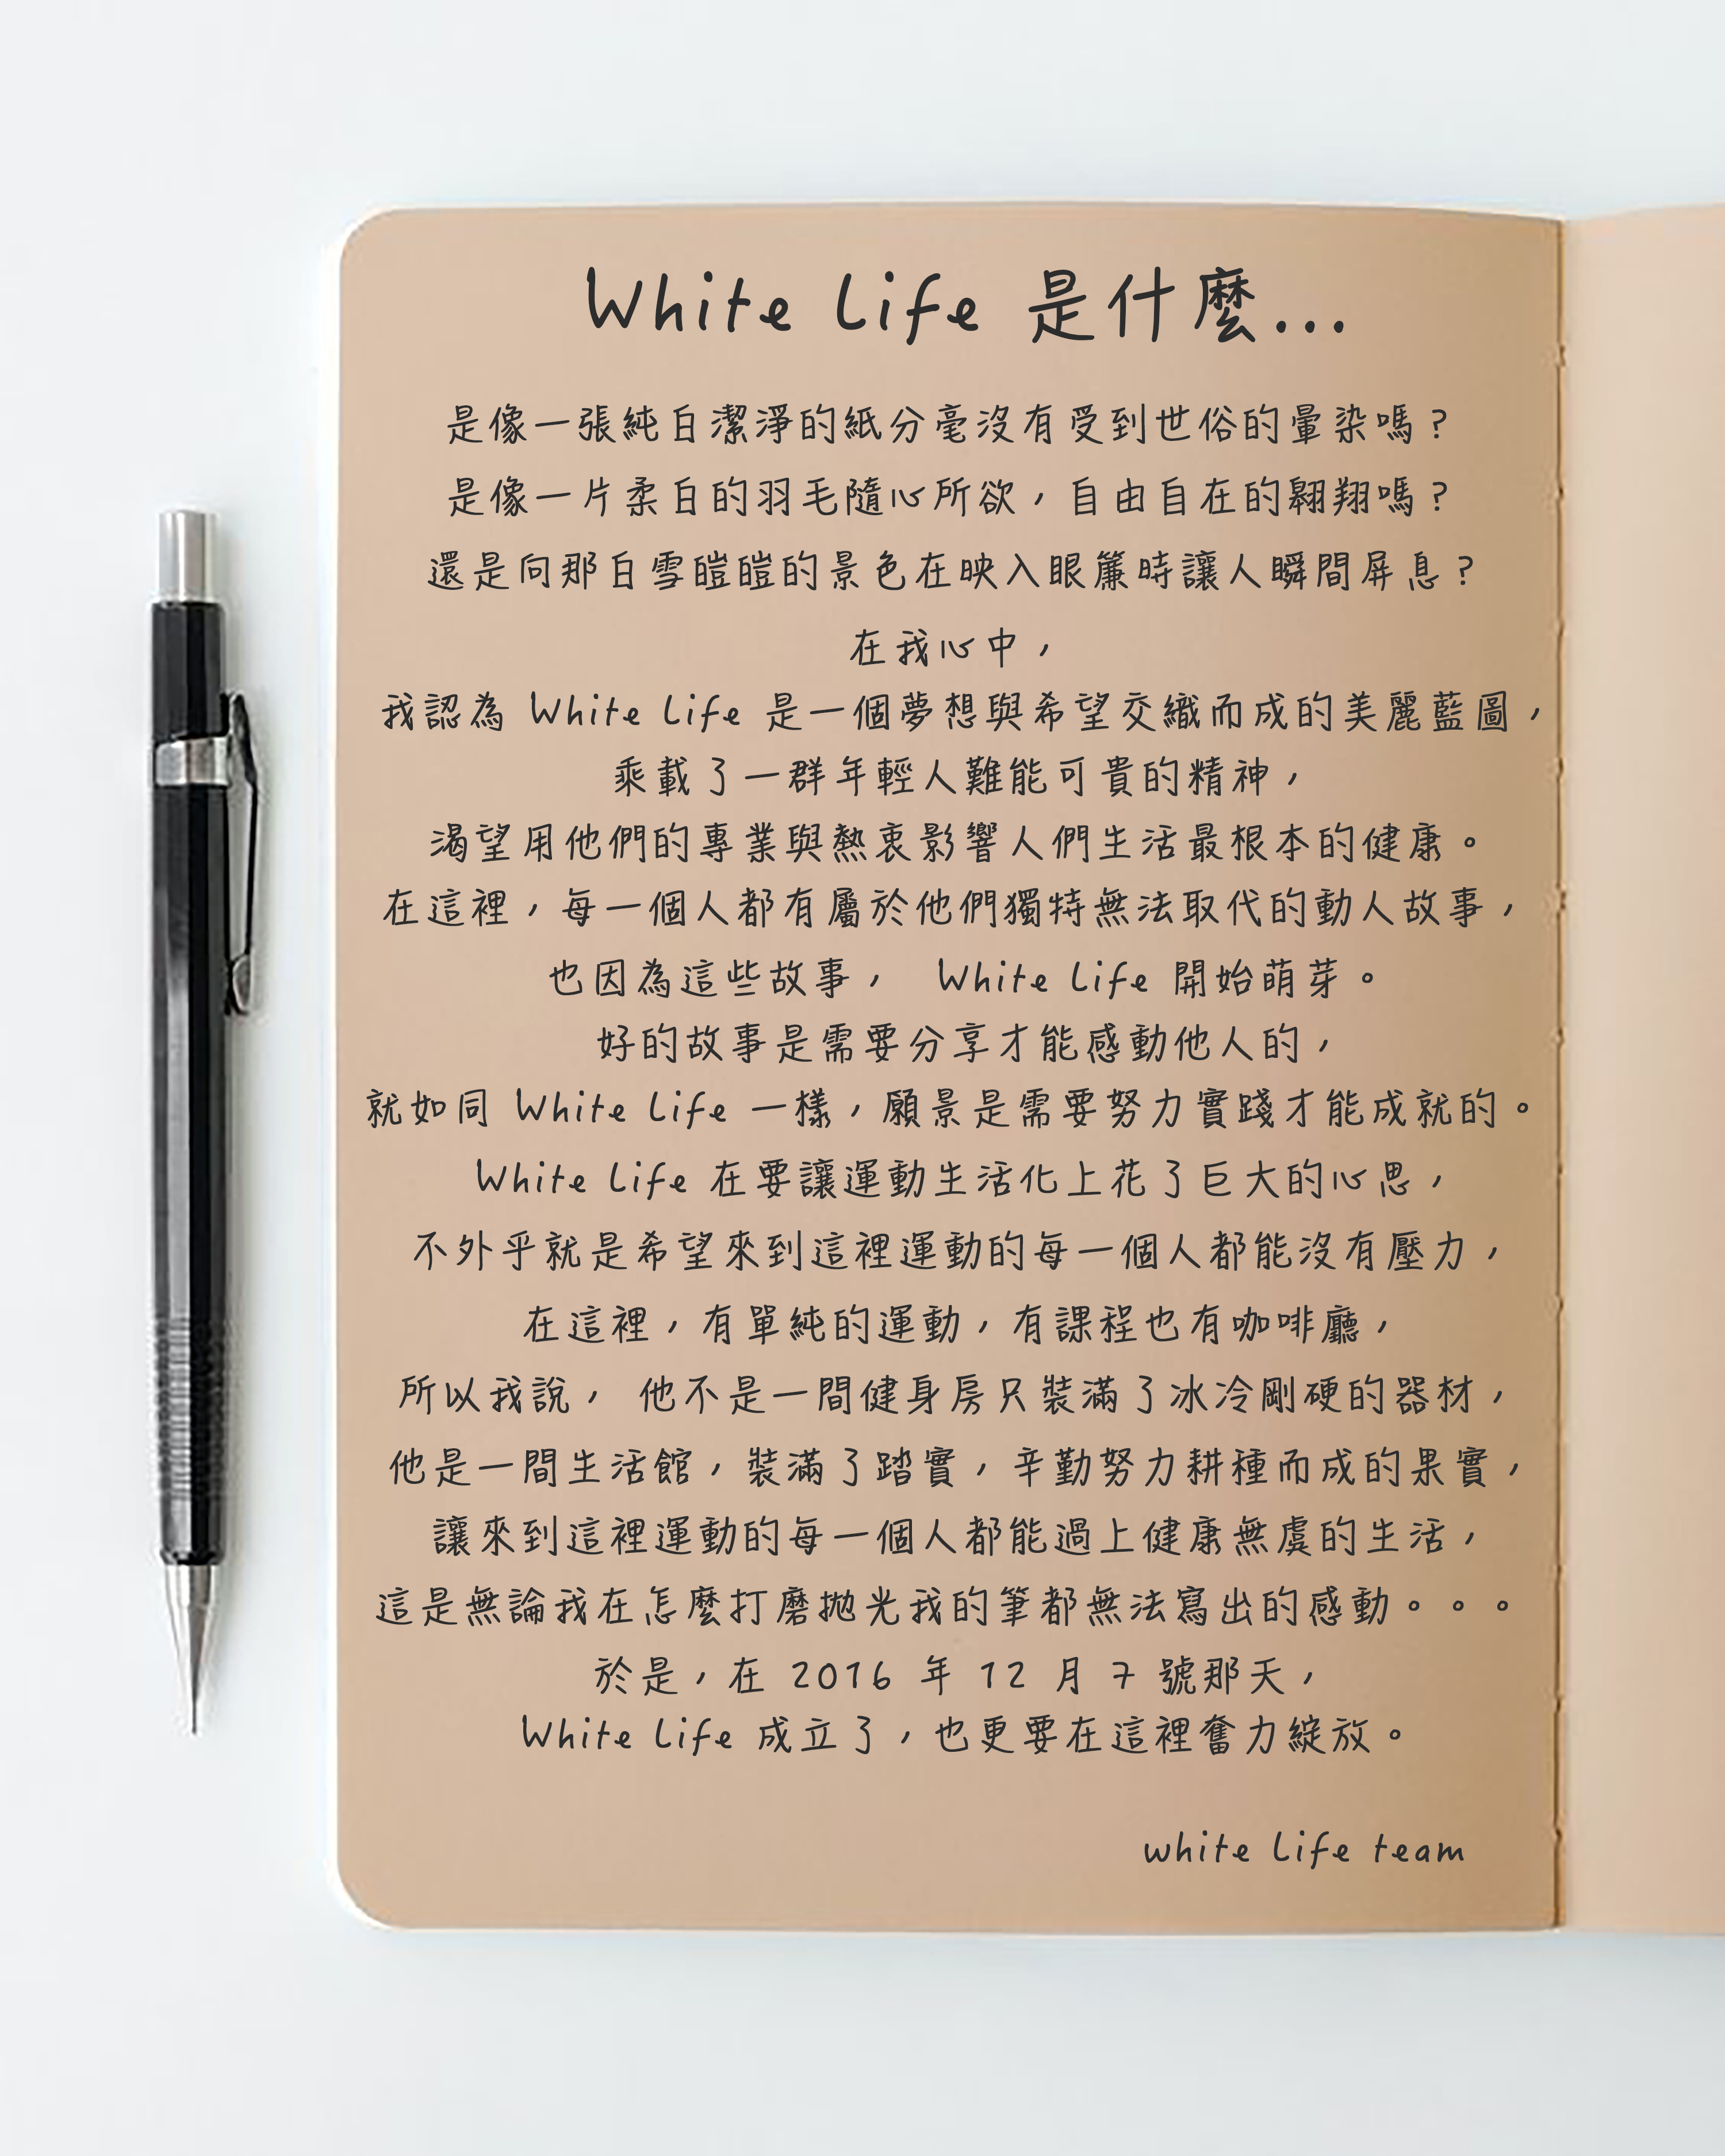 White Life 是什麼...
是像一張純白潔淨的紙分毫沒有受到世俗的暈染嗎？
是像一片柔白的羽毛隨心所欲，自由自在的翱翔嗎？
還是向那白雪皚皚的景色在映入眼簾時讓人瞬間屏息？
在我心中，
我認為 White Life 是一個夢想與希望交織而成的美麗藍圖，
乘載了一群年輕人難能可貴的精神，
渴望用他們的專業與熱衷影響人們生活最根本的健康。
在這裡，每一個人都有屬於他們獨特無法取代的動人故事，
也因為這些故事， White Life 開始萌芽。
好的故事是需要分享才能感動他人的，
就如同 White Life 一樣，願景是需要努力實踐才能成就的。
White Life 在要讓運動生活化上花了巨大的心思，
不外乎就是希望來到這裡運動的每一個人都能沒有壓力，
在這裡，有單純的運動，有課程也有咖啡廳，
所以我說， 他不是一間健身房只裝滿了冰冷剛硬的器材，
他是一間生活館，裝滿了踏實，辛勤努力耕種而成的果實，
讓來到這裡運動的每一個人都能過上健康無虞的生活，
這是無論我在怎麼打磨拋光我的筆都無法寫出的感動。。。
於是，在 2016 年 12 月 7 號那天，
White Life 成立了，也更要在這裡奮力綻放。
white life team